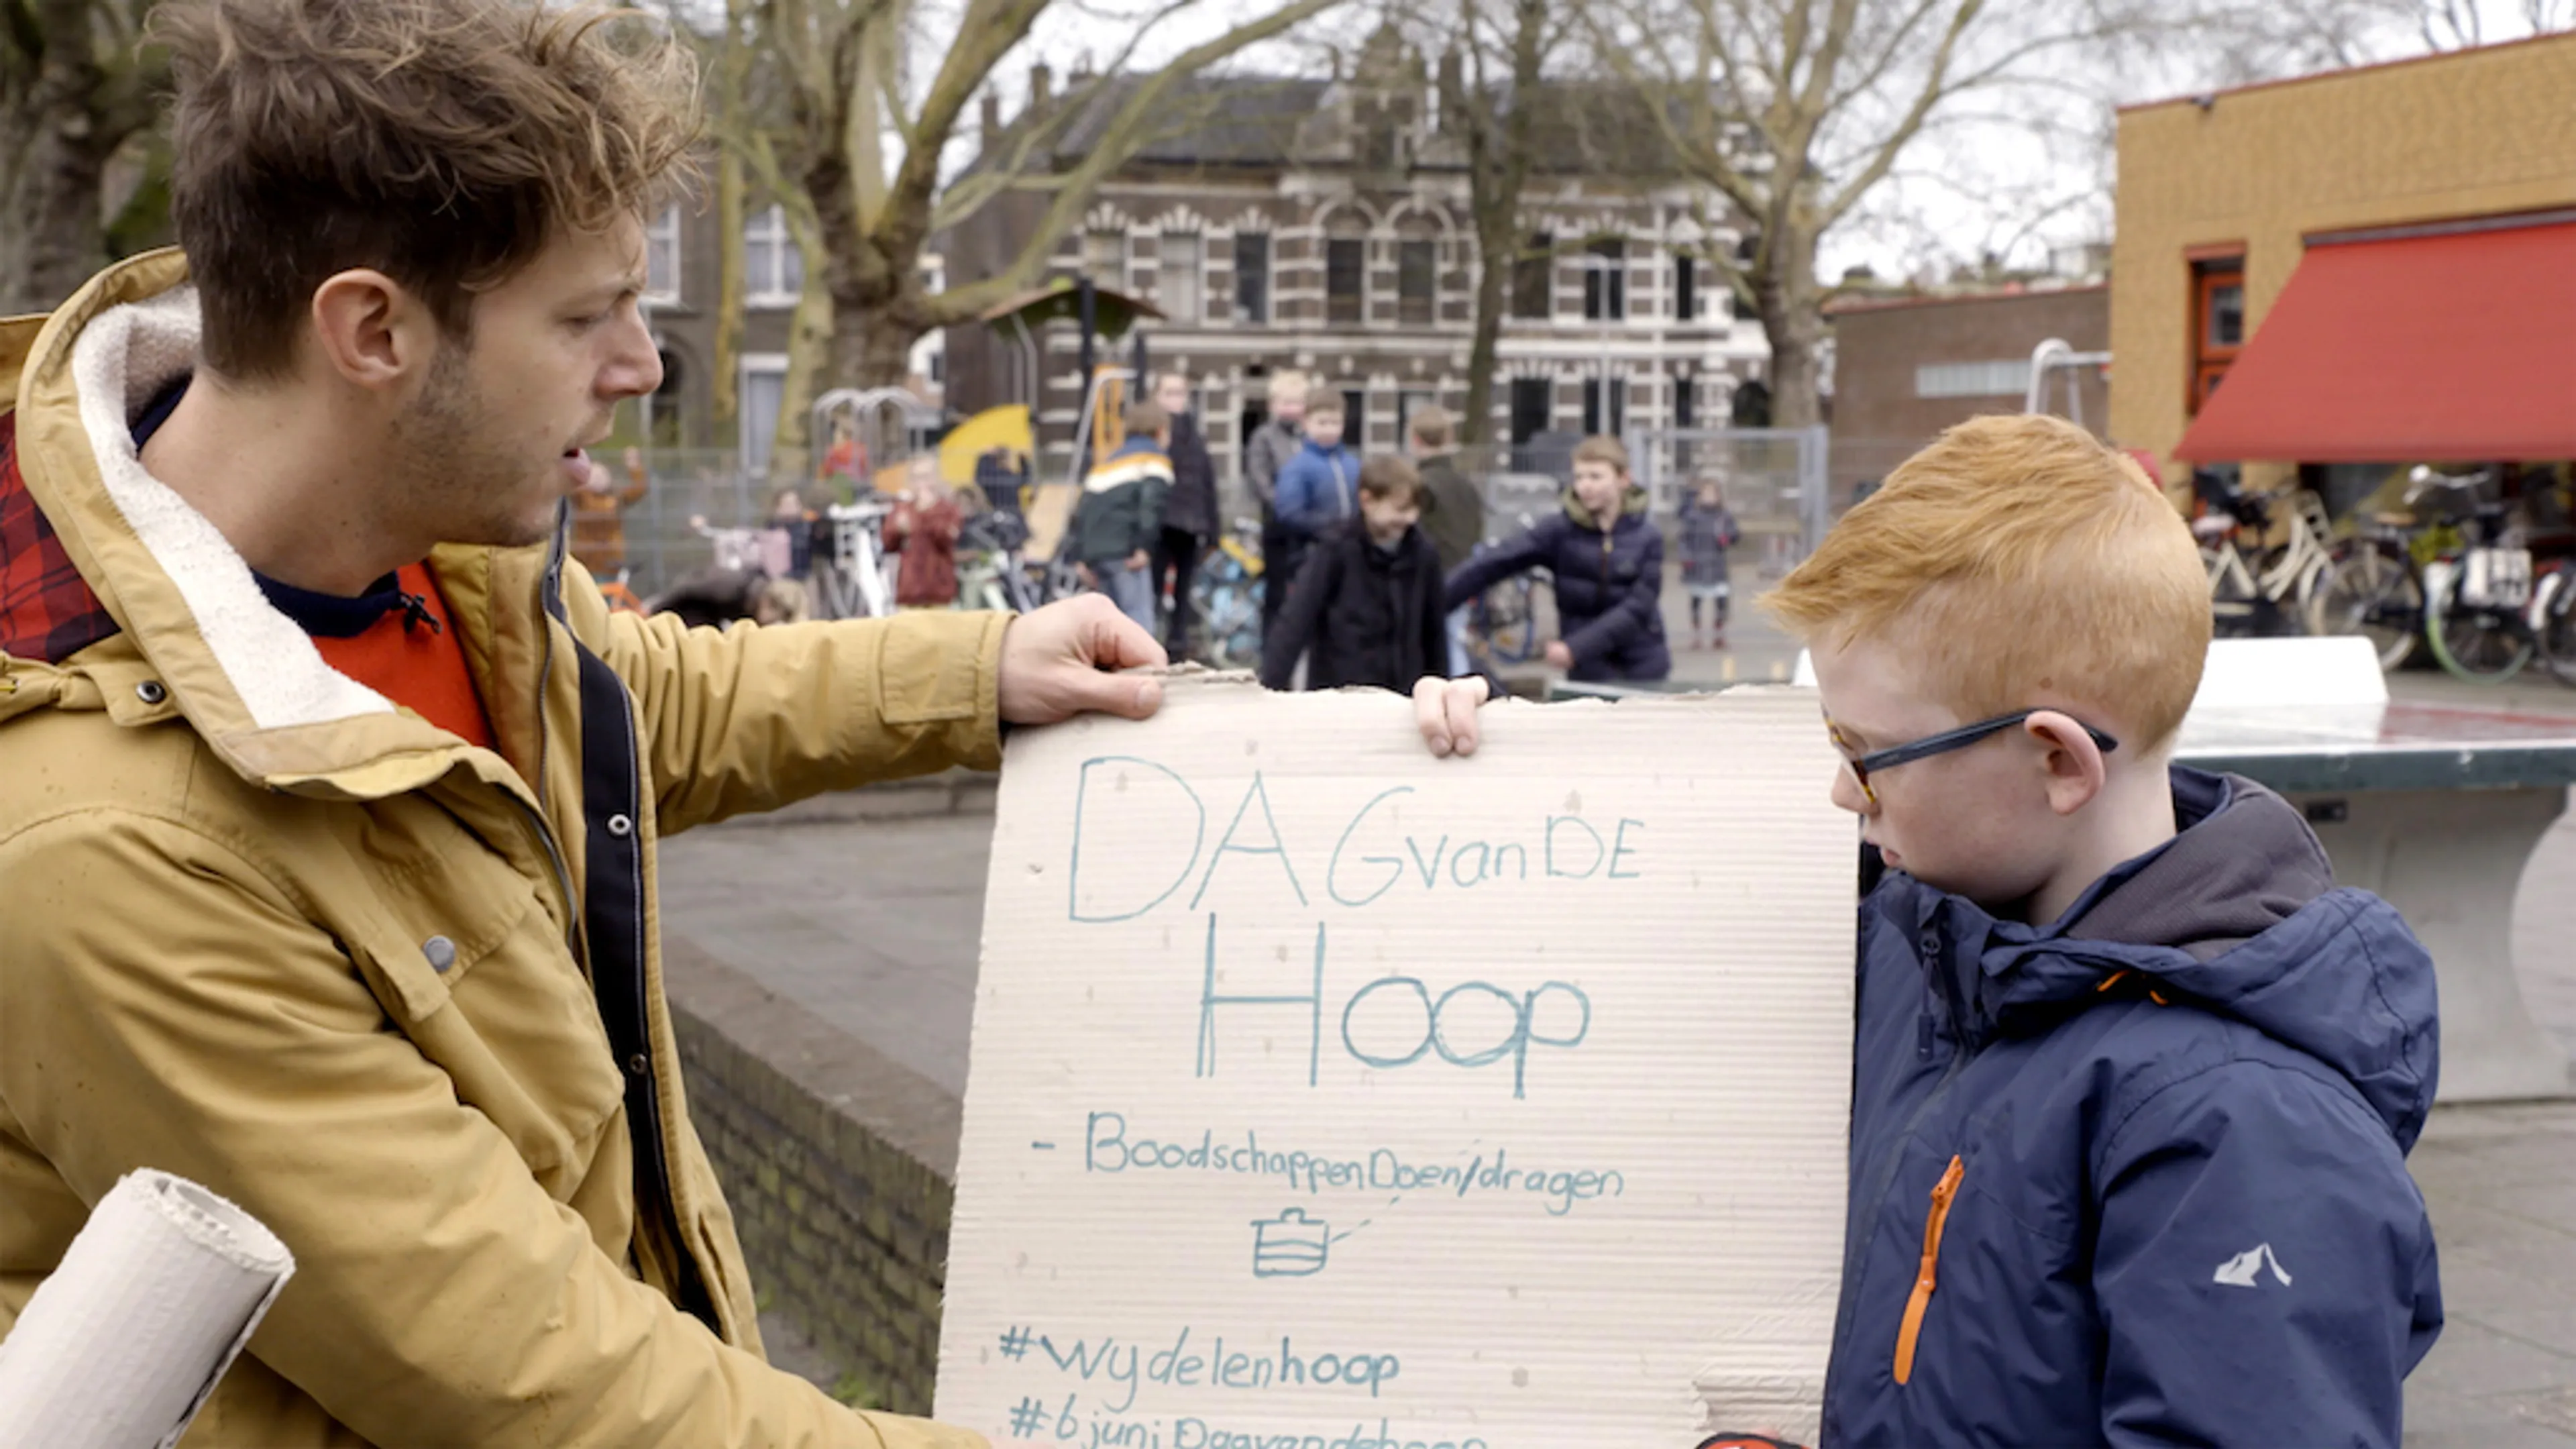 DAG van DE
Hoop
- Boodschappen Doen/dragen
#wydelenhoop
#6juni Dagvandehoop